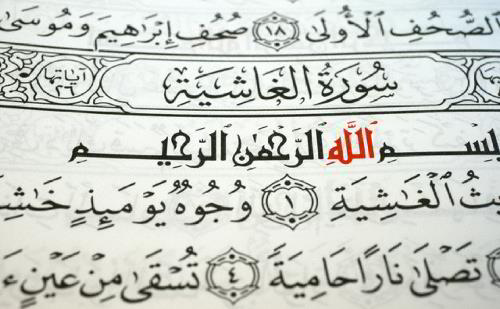 الصُّحُفِ الْأُولَىٰ ١٨ صُحُفِ إِبْرَاهِيمَ وَمُوسَىٰ
سُورَةُ الْغَاشِيَةِ آيَاتُهَا ٢٦
بِسْمِ اللَّهِ الرَّحْمَٰنِ الرَّحِيمِ
الْغَاشِيَةِ ١ وُجُوهٌ يَوْمَئِذٍ
تَصْلَىٰ نَارًا حَامِيَةً ٤ تُسْقَىٰ مِنْ عَيْنٍ ءَ